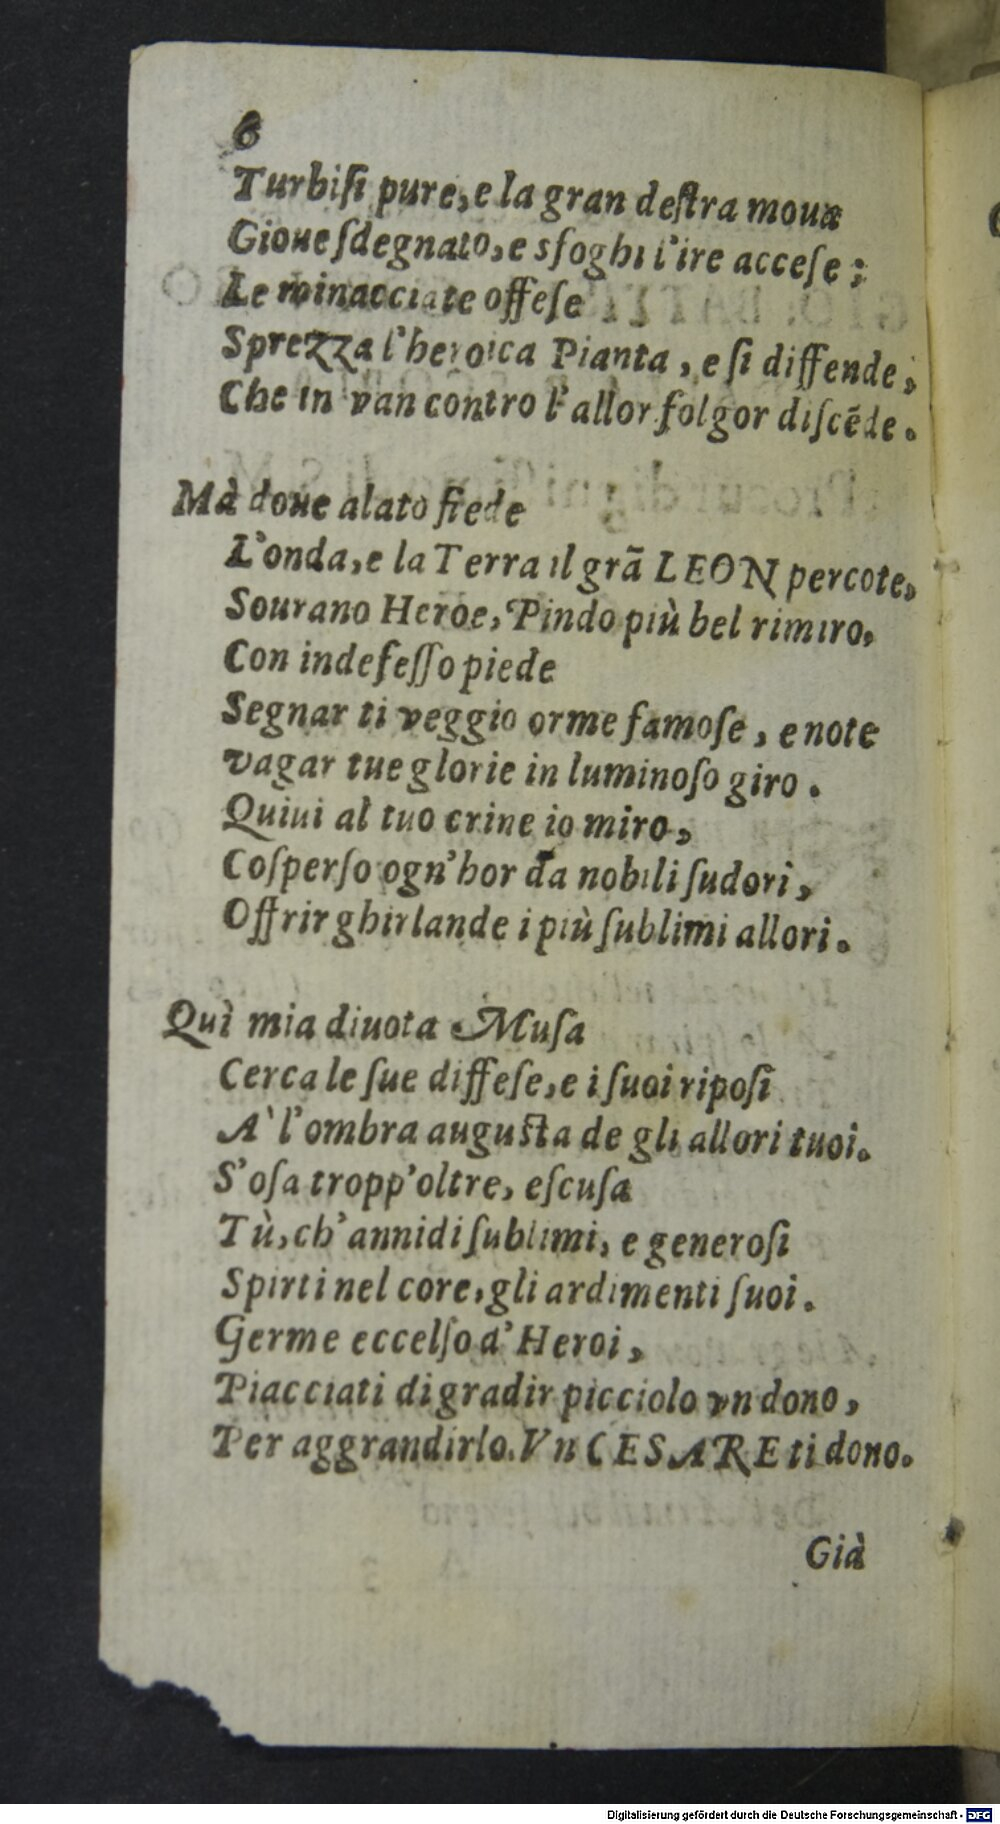 6
Turbiſi pure, e la gran deſtra moua
Gioue ſdegnato, e sfoghi l'ire acceſe;
Le minacciate offeſe
Sprezza l'heroica Pianta, e ſi diffende;
Che in van contro l'allor folgor diſcẽde.
Mà doue alato fiede
L'onda, e la Terra il grã LEON percote,
Sourano Heroe, Pindo più bel rimiro,
Con indefeſſo piede
Segnar ti veggio orme famoſe, e note
vagar tue glorie in luminoſo giro.
Quiui al tuo crine io miro,
Coſperſo ogn'hor da nobili ſudori,
Offrir ghirlande i più ſublimi allori.
Quì mia diuota Muſa
Cerca le ſue diffeſe, e i ſuoi ripoſi
A' l'ombra auguſta de gli allori tuoi.
S'oſa tropp'oltre, eſcuſa
Tù, ch'annidi ſublimi, e generoſi
Spirti nel core, gli ardimenti ſuoi.
Germe eccelſo d'Heroi,
Piacciati di gradir picciolo vn dono,
Per aggrandirlo. Vn CESARE ti dono.
Già
Digitalisierung gefördert durch die Deutsche Forschungsgemeinschaft - DFG